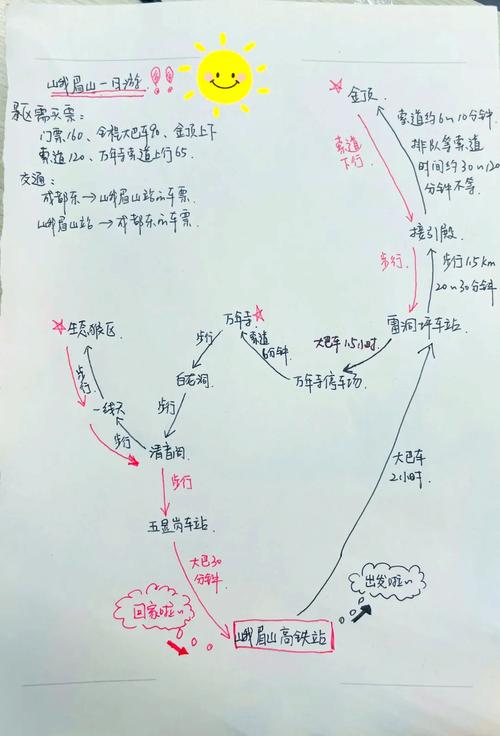 峨眉山一日游!!
景区需买票:
门票160、全程大巴车90、金顶上下
索道120、万年寺索道上行65.
交通:
成都东→峨眉山站的车票
峨眉山站→成都东的车票.
金顶.
索道约6~10分钟.
排队等索道
时间约30~120
分钟不等.
索道
下行
接引殿
步行
步行1.5km
20~30分钟
雷洞坪车站
大巴车1.5小时
万年寺停车场.
万年寺
索道
6分钟
步行
白龙洞.
步行
清音阁
步行
一线天
步行
生态猴区.
步行
步行
五显岗车站
大巴30
分钟
回家啦~
峨眉山高铁站
出发啦~
大巴车
2小时.